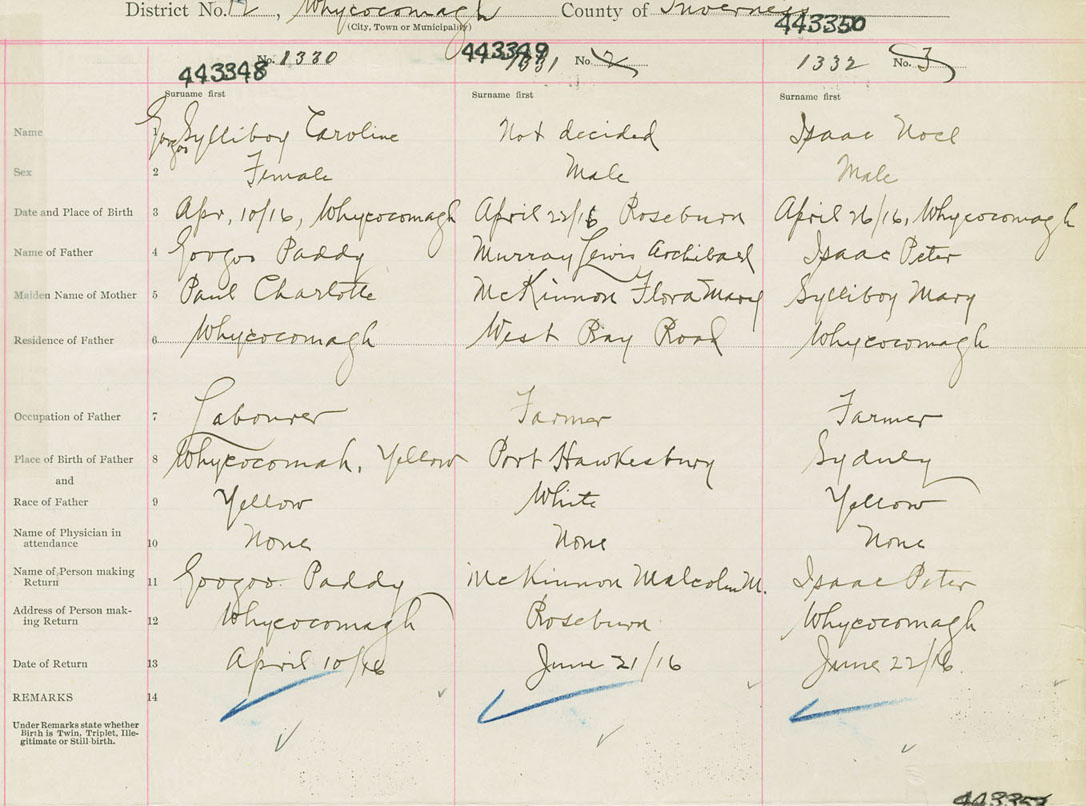 District No. 12, Whycocomagh County of Inverness
(City, Town or Municipality)
443348 443349 443350
No. 1330 1331 No. 2 1332 No. 3
Surname first Surname first Surname first
Name 1 Googoo Sylliboy Caroline Not decided Isaac Noel
Sex 2 Female Male Male
Date and Place of Birth 3 Apr, 10/16, Whycocomagh April 22/16 Roseburn April 26/16, Whycocomagh
Name of Father 4 Googoo Paddy Murray Lewis Archibael Isaac Peter
Maiden Name of Mother 5 Paul Charlotte McKinnon Flora Mary Sylliboy Mary
Residence of Father 6 Whycocomagh West Bay Road Whycocomagh
Occupation of Father 7 Labourer Farmer Farmer
Place of Birth of Father 8 Whycocomah, Yellow Port Hawkesbury Sydney
and
Race of Father 9 Yellow White Yellow
Name of Physician in
attendance 10 None None None
Name of Person making
Return 11 Googoo Paddy McKinnon Malcolm M. Isaac Peter
Address of Person mak-
ing Return 12 Whycocomagh Roseburn Whycocomagh
Date of Return 13 April 10/16 June 21/16 June 22/16.
REMARKS 14
Under Remarks state whether
Birth is Twin, Triplet, Ille-
gitimate or Still-birth.